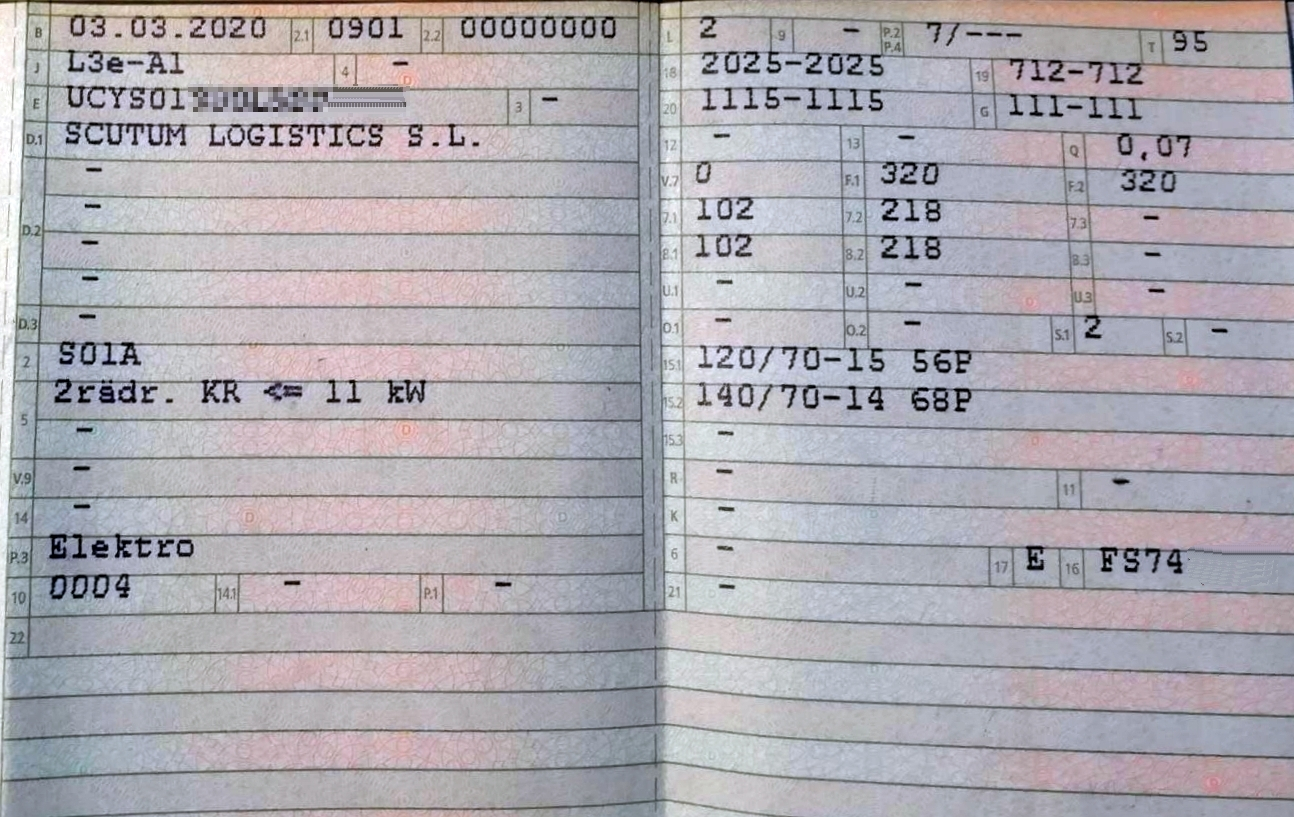 B 03.03.2020 2.1 0901 2.2 00000000
J L3e-A1 4 -
E UCYS01 3 -
D.1 SCUTUM LOGISTICS S.L.
-
-
D.2 -
-
D.3 -
2 S01A
2rädr. KR <= 11 kW
5 -
V.9 -
14 -
P.3 Elektro
10 0004 14.1 - P.1 -
22
L 2 9 - P.2 P.4 7/--- T 95
18 2025-2025 19 712-712
20 1115-1115 G 111-111
12 - 13 - Q 0,07
V.7 0 F.1 320 F.2 320
7.1 102 7.2 218 7.3 -
8.1 102 8.2 218 8.3 -
U.1 - U.2 - U.3 -
O.1 - O.2 - S.1 2 S.2 -
15.1 120/70-15 56P
15.2 140/70-14 68P
15.3 -
R - 11 -
K -
6 - 17 E 16 FS74
21 -